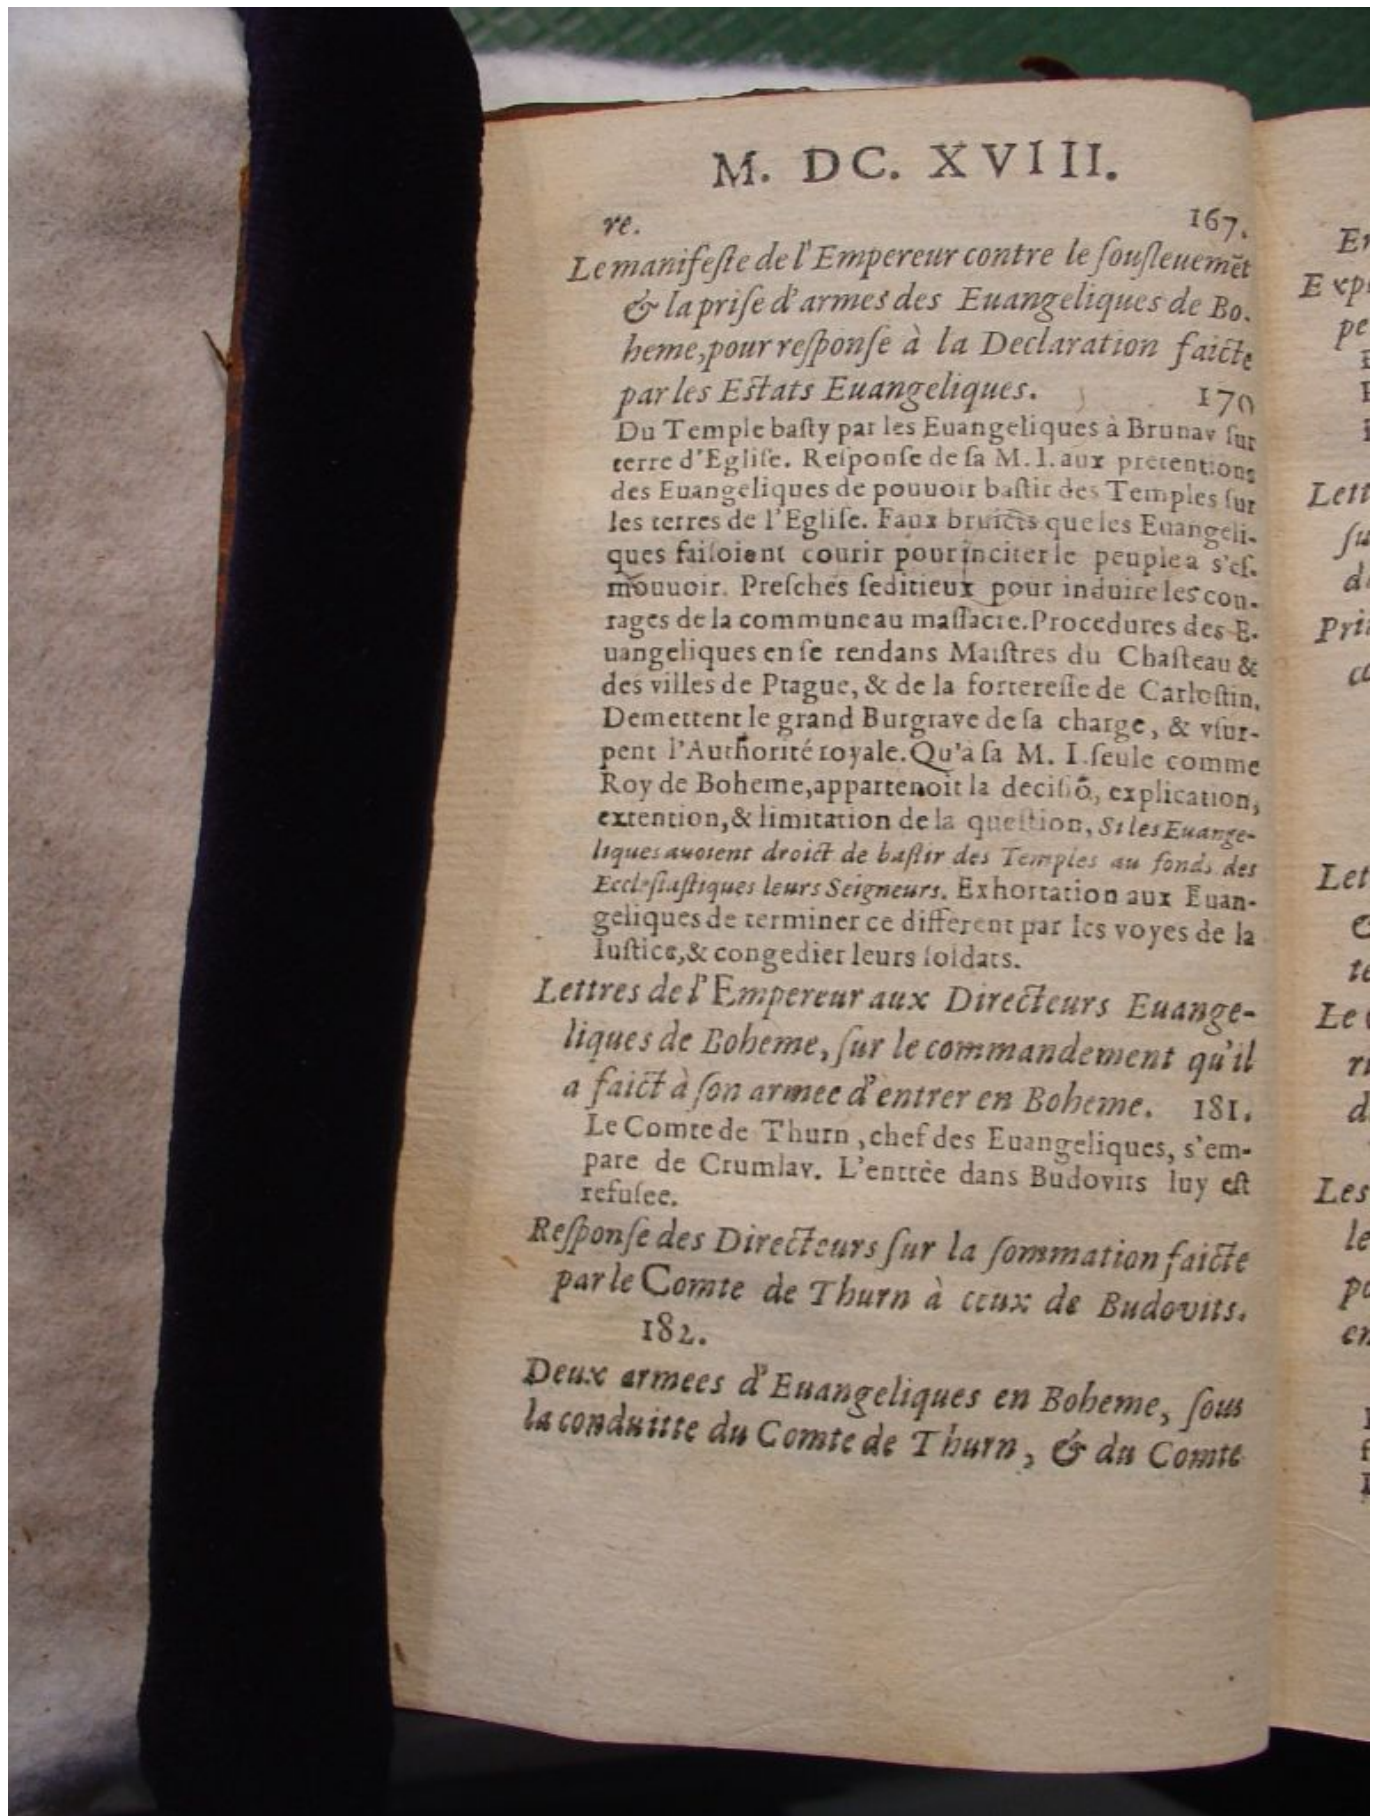 M. DC. XVIII.
re. 167.
Le manifeste de l'Empereur contre le sousleuemēt
& la prise d'armes des Euangeliques de Bo.
heme, pour response à la Declaration faicte
par les Estats Euangeliques. 170
Du Temple basty par les Euangeliques à Brunav sur
terre d'Eglise. Response de sa M. I. aux pretentions
des Euangeliques de pouuoir bastir des Temples sur
les terres de l'Eglise. Faux bruicts que les Euangeli-
ques faisoient courir pour inciter le peuple a s'es-
mouuoir. Presches seditieux pour induire les cou-
rages de la commune au massacre. Procedures des E-
uangeliques en se rendans Maistres du Chasteau &
des villes de Prague, & de la forteresse de Carlostin.
Demettent le grand Burgrave de sa charge, & vsur-
pent l'Authorité royale. Qu'à sa M. I. seule comme
Roy de Boheme, appartenoit la decisiō, explication,
extention, & limitation de la question, Si les Euange-
liques auoient droict de bastir des Temples au fonds des
Ecclesiastiques leurs Seigneurs. Exhortation aux Euan-
geliques de terminer ce different par les voyes de la
Iustice, & congedier leurs soldats.
Lettres de l'Empereur aux Directeurs Euange-
liques de Boheme, sur le commandement qu'il
a faict à son armee d'entrer en Boheme. 181.
Le Comte de Thurn, chef des Euangeliques, s'em-
pare de Crumlav. L'entrèe dans Budovits luy est
refusee.
Response des Directeurs sur la sommation faicte
par le Comte de Thurn à ceux de Budovits.
182.
Deux armees d'Euangeliques en Boheme, sous
la conduitte du Comte de Thurn, & du Comte